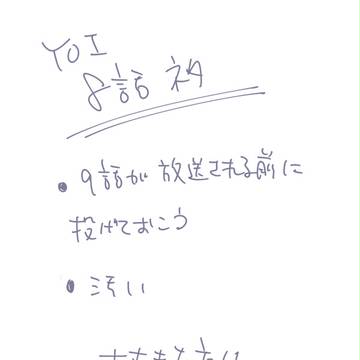 YOI
8話 ネタ
• 9話が放送される前に
投げておこう
• 汚い